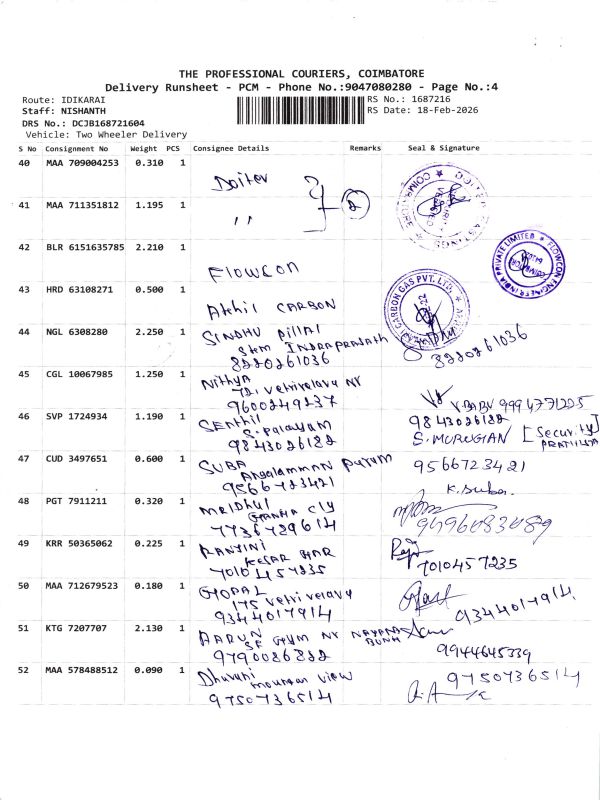 THE PROFESSIONAL COURIERS, COIMBATORE
Delivery Runsheet - PCM - Phone No.:9047080280 - Page No.:4
Route: IDIKARAI
Staff: NISHANTH
DRS No.: DCJB168721604
Vehicle: Two Wheeler Delivery
RS No.: 1687216
RS Date: 18-Feb-2026
S No Consignment No Weight PCS Consignee Details Remarks Seal & Signature
40 MAA 709004253 0.310 1 Doitev
41 MAA 711351812 1.195 1 ,, 2
42 BLR 6151635785 2.210 1 Flowcon
FLOWCON ENGINEER INDIA PRIVATE LIMITED
43 HRD 63108271 0.500 1 Akhil CARBON
CARBON GAS PVT. LTD.
44 NGL 6308280 2.250 1 SINDHU PILLAI
SKM INDRAPRASATH
8220261036 8220261036
45 CGL 10067985 1.250 1 Nithya
72, vetrivelava NR
9600249237 V BABU 9994771225
46 SVP 1724934 1.190 1 SENTHIL 9843026122
S. Palayam S. MURUGIAN [Security]
9843026122
47 CUD 3497651 0.600 1 SUBA 9566723421
Angalamman Puram
9566723421 K. Suba.
48 PGT 7911211 0.320 1 MRIDHUL
GANGA CLY
7736729614 9496083089
49 KRR 50365062 0.225 1 RANJINI
KESAR HAR
7010457235 7010457235
50 MAA 712679523 0.180 1 GOPAL
175 vetrivelava
9344017914 9344017914
51 KTG 7207707 2.130 1 ARUN
SF GYM NR NAYARA BUNK
9790086822 9944645339
52 MAA 578488512 0.090 1 Dhuvani 9750736514
mountan view
9750736514